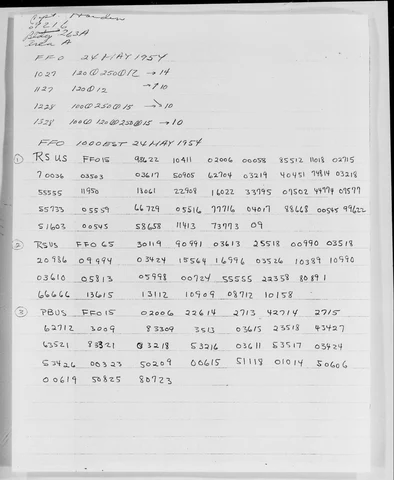 Capt. Hardin
69216
Bldg 263A
Area A
FFO 24 MAY 1954
1027 120@250@12 → 14
1127 120@12 → 10
1228 100@250@15 → 10
1328 100@120@250@15 → 10
FFO 1000EST 24 MAY 1954
① RSUS FFO15 98622 10411 02006 00058 85512 11018 02715
70036 03503 03617 50905 62704 03219 40451 74814 03218
55555 11950 13061 22908 16022 33795 07502 44774 07577
55733 05559 66729 05516 77716 04017 88668 00545 99622
51603 00545 58658 11413 73773 09
② RSUS FFO 65 30119 90991 03613 25518 00990 03518
20986 09994 03424 15564 16996 03526 10389 10990
03610 05813 05998 00724 55555 22358 80891
66666 13615 13112 10909 08712 10158
③ PBUS FFO15 02006 22614 2713 42714 2715
62712 3009 83309 3513 03615 23518 43427
63521 83321 03218 53216 03611 53517 03429
53426 00323 50209 00615 51118 01014 50606
00619 50825 80723